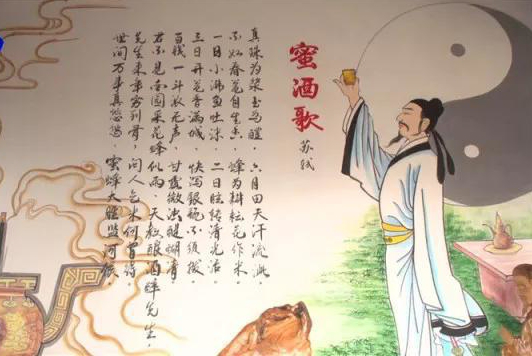 蜜酒歌
苏轼
真珠为浆玉为醴，六月田夫汗流泚。
不如春瓮自生香，蜂为耕耘花作米。
一日小沸鱼吐沫，二日眩转清光活。
三日开瓮香满城，快泻银瓶不须拨。
百钱一斗浓无声，甘露微浊醍醐清。
君不见南园采花蜂似雨，天教酿酒醉先生。
先生年来穷到骨，问人乞米何曾得。
世间万事真悠悠，蜜蜂大胜监河侯。